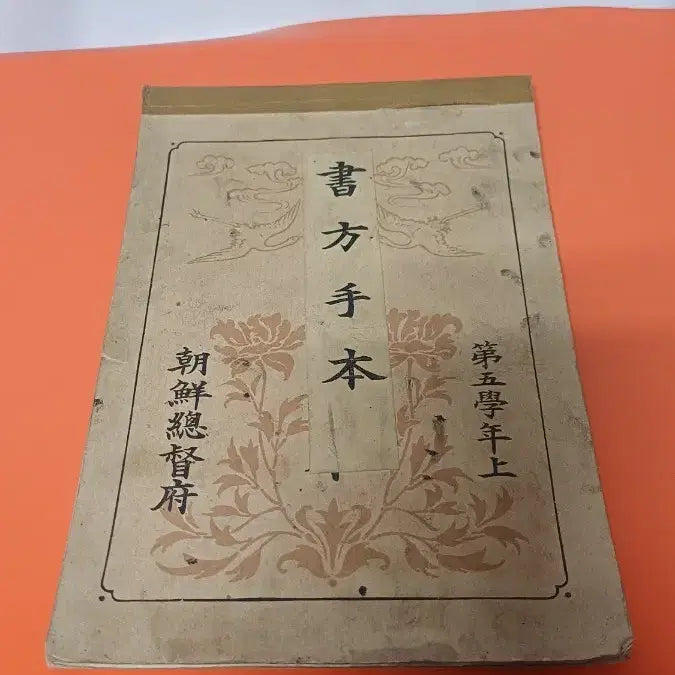 第五學年上
書方手本
朝鮮總督府